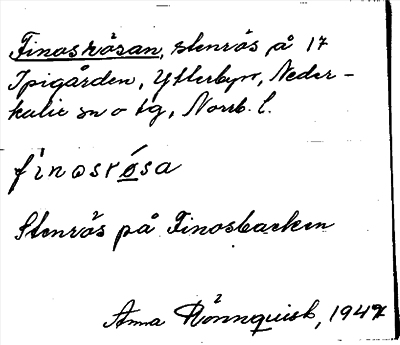 Finosrösan, stenrös på 17
Ipigården, Ytterbyn, Neder-
kalix sn o tg, Norrb. l.
finosrösa
Stenrös på Finosbacken
Anna Rönnquist, 1947